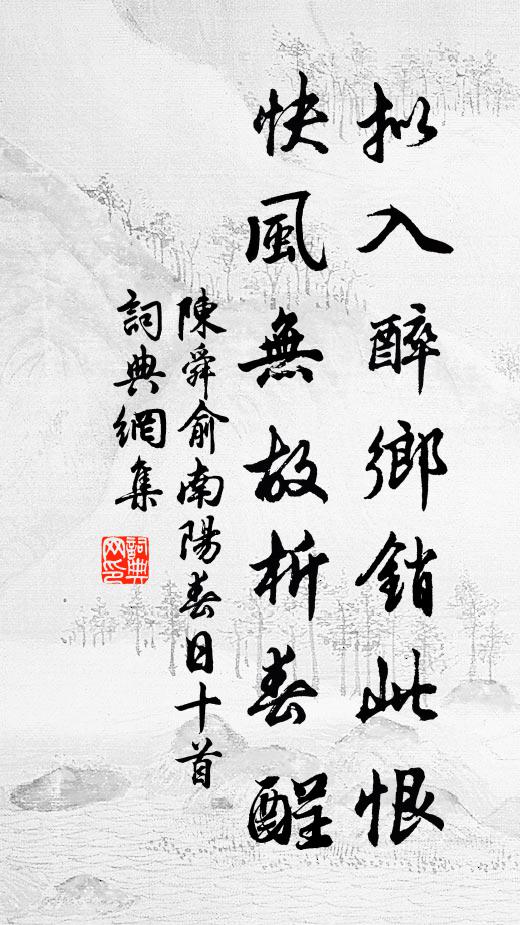 拟入醉鄉銷此恨
快風無故析春酲
陳舜俞南陽春日十首
詞典網集
詞典网印